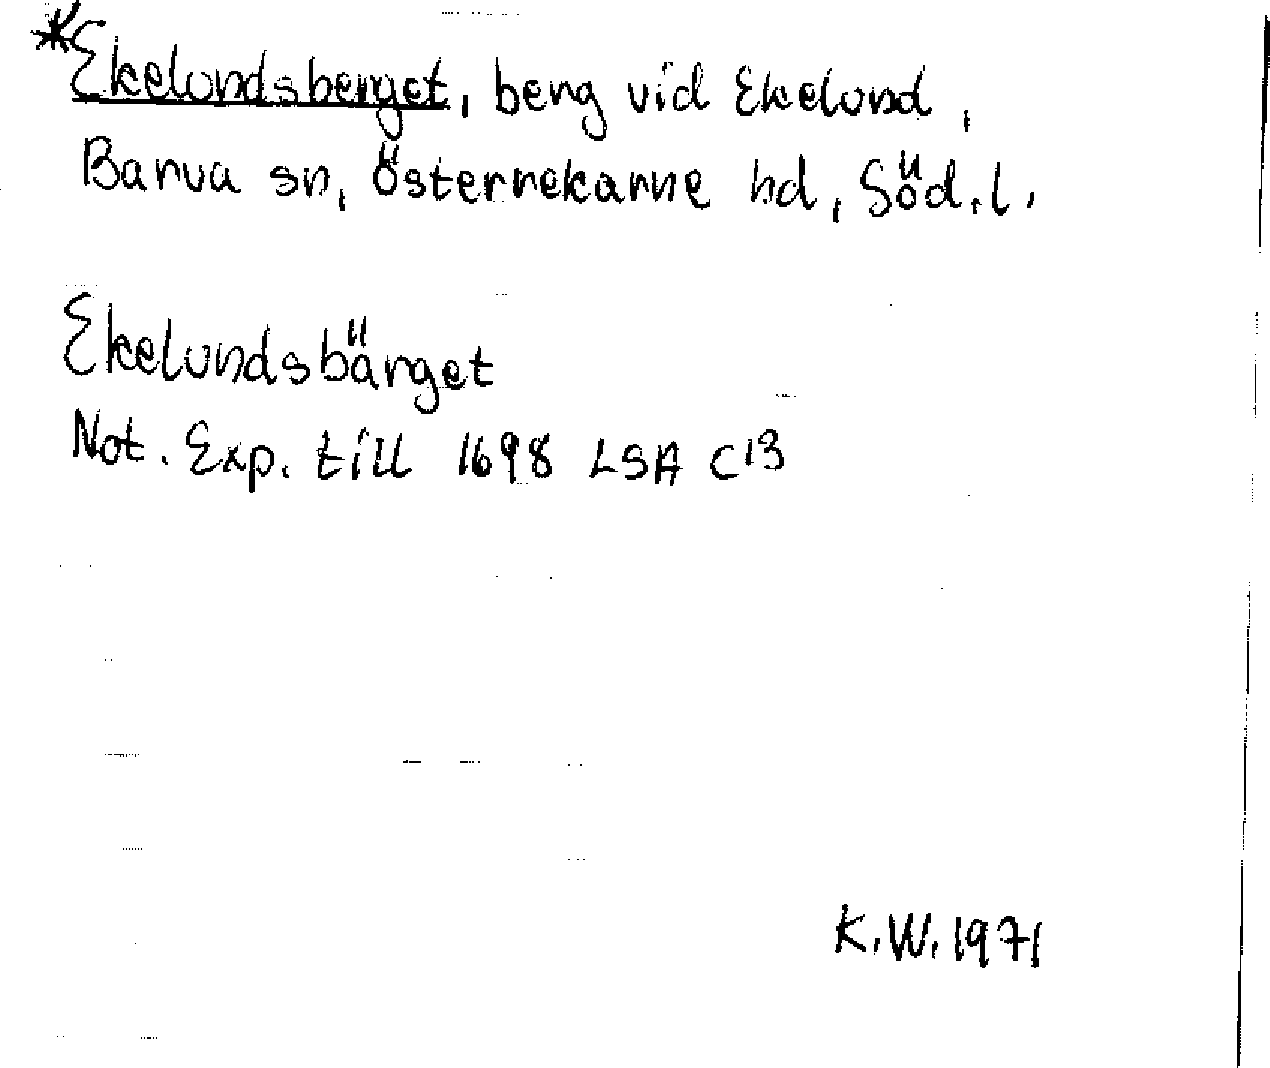 *Ekelundsberget, berg vid Ekelund,
Barva sn, Österrekarne hd, Söd.l.
Ekelundsbärget
Not. Exp. till 1698 LSA C13
K.W. 1971